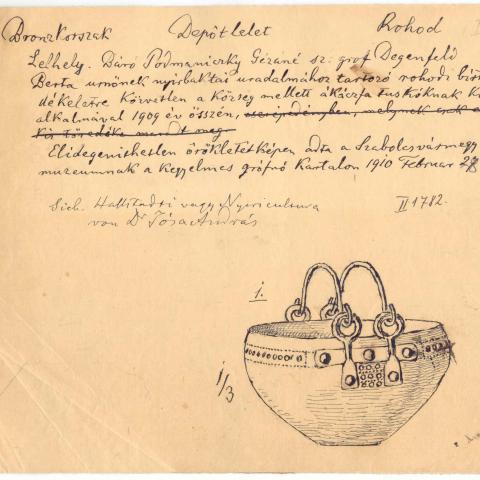 Bronzkorszak Depôtlelet Rohod
Lelhely. Báró Podmaniczky Gézáné sz: gróf Degenfeld
Berta urnőnek nyirbaktai uradalmához tartozó rohodi
délkeletre közvetlen a község mellett ákáczfa tuskóknak
alkalmával 1909 év őszén, melynek csak
kis töredéke maradt meg
Elidegenithetlen örökletétképen adta a Szabolcsvármegy
muzeumnak a kegyelmes grófnő Kartalon 1910 Februar 27
Sieh. Hallstadti vagy Nyiricultura II 1782.
von Dr Jósa András
1.
1/3